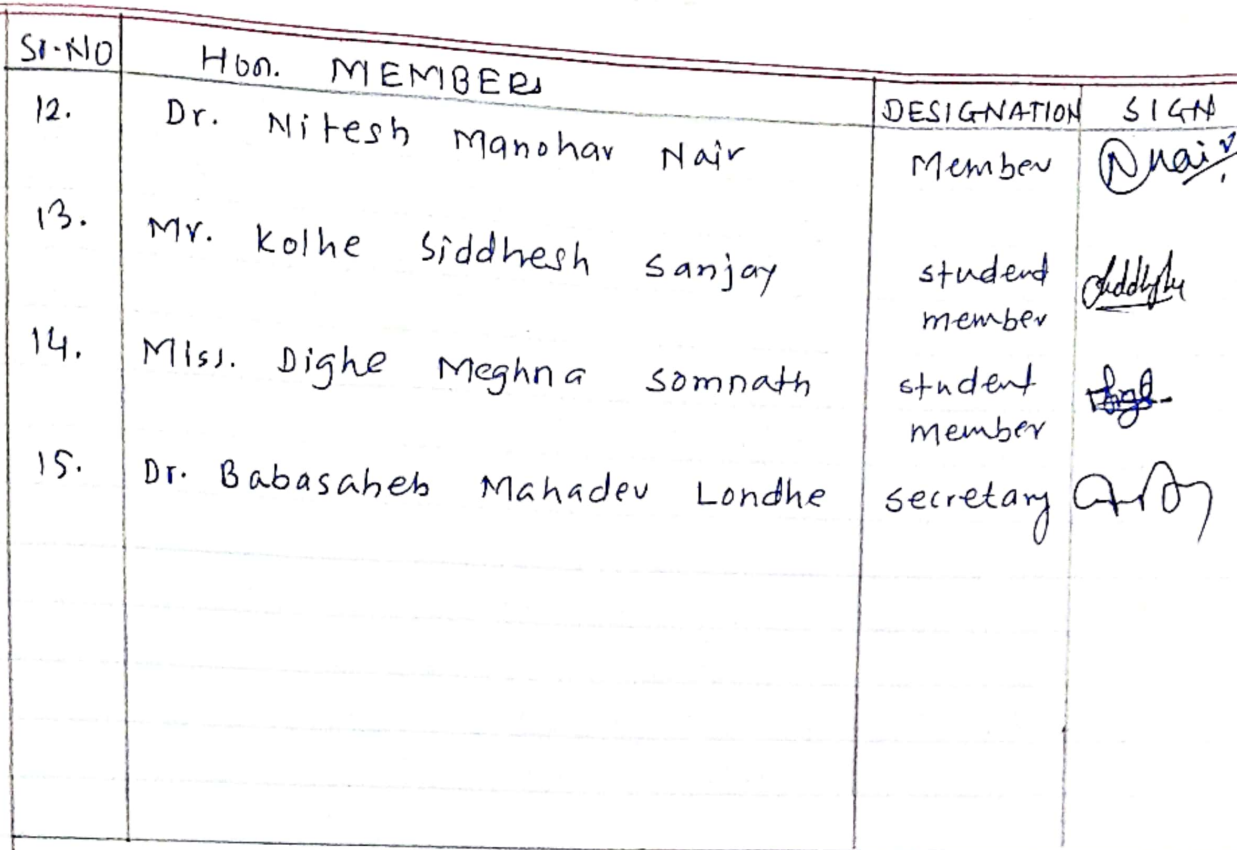 SI-NO Hon. MEMBERS DESIGNATION SIGN
12. Dr. Nitesh Manohar Nair Member Nnair
13. Mr. Kolhe Siddhesh Sanjay student
member
14. Miss. Dighe Meghna Somnath student
member
15. Dr. Babasaheb Mahadev Londhe secretary